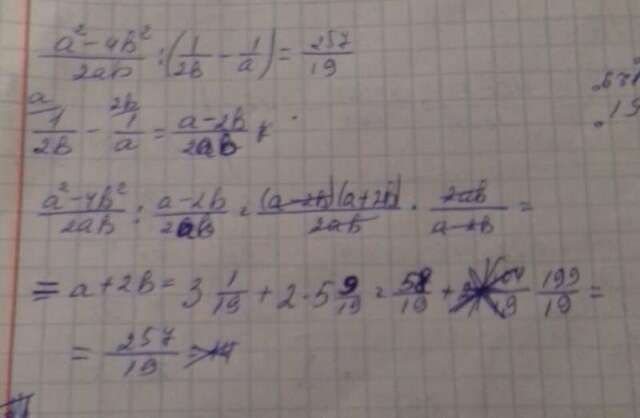 (a² - 4b²)/(2ab) : (1/(2b) - 1/a) = 257/19
1/(2b) - 1/a = (a - 2b)/(2ab)
(a² - 4b²)/(2ab) : (a - 2b)/(2ab) = ((a - 2b)(a + 2b))/(2ab) · (2ab)/(a - 2b) =
= a + 2b = 3 1/19 + 2 · 5 9/19 = 58/19 + 199/19 =
= 257/19